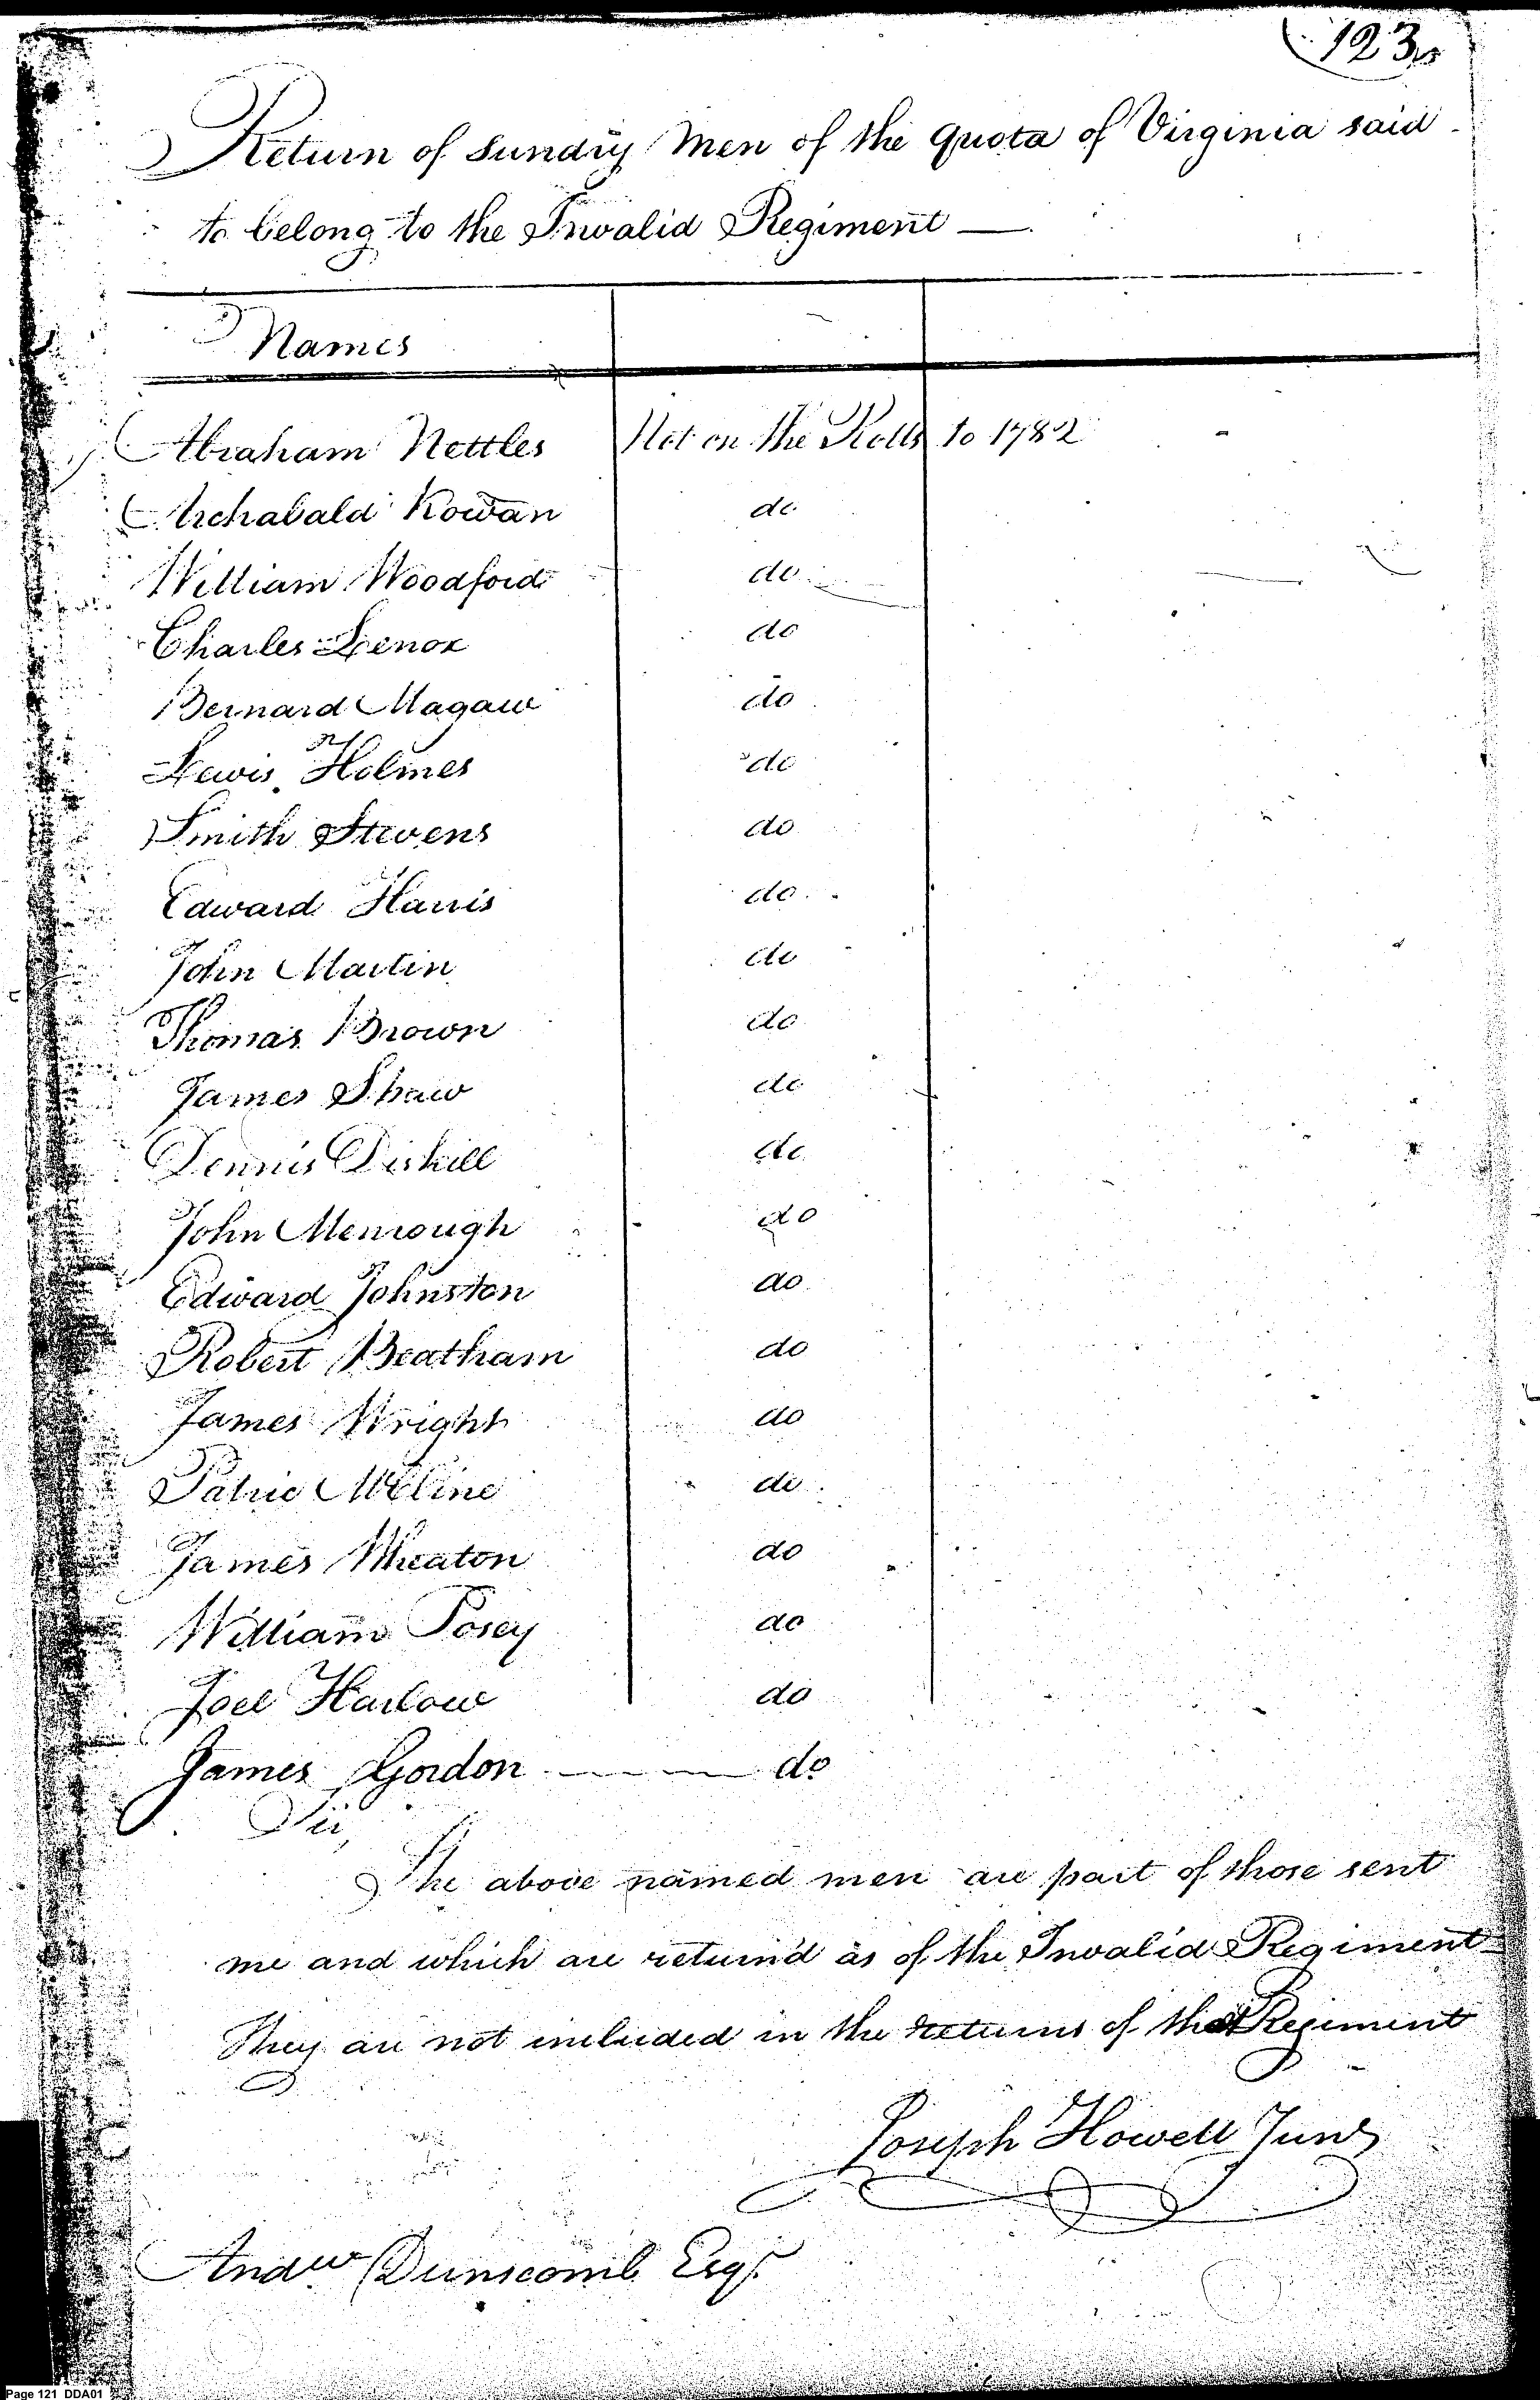 123
Return of Sundry Men of the quota of Virginia said
to belong to the Invalid Regiment —
Names
Abraham Nettles Not on the Rolls to 1782
Archabald Kowan do
William Woodford do
Charles Lenox do
Bernard Magaw do
Lewis Holmes do
Smith Stevens do
Edward Harris do
John Martin do
Thomas Brown do
James Shaw do
Dennis Diskill do
John Menrough do
Edward Johnston do
Robert Beatham do
James Wright do
Patric do
James Wheaton do
William Posey do
Joel Harlow do
James Gordon — — — do
Sir,
The above named men are part of those sent
me and which are return'd as of the Invalid Regiment
They are not included in the returns of that Regiment
Joseph Howell Junr
Andw Dunscomb Esqr
Page 121 DDA01